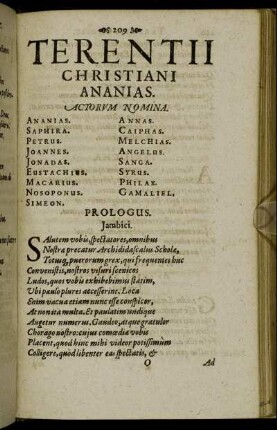 209
TERENTII
CHRISTIANI
ANANIAS.
ACTORVM NOMINA.
ANANIAS. ANNAS.
SAPHIRA. CAIPHAS.
PETRUS. MELCHIAS.
JOANNES. ANGELUS.
JONADAS. SANGA.
EUSTACHIUS. SYRUS.
MACARIUS. PHILAX.
NOSOPONUS. GAMALIEL.
SIMEON.
PROLOGUS.
Jambici.
SAlutem vobis, spectatores, omnibus
Nostra precatur Archididascalus Scholæ,
Totusq, puerorum grex, qui frequentes huc
Convenistis, nostros visuri scenicos
Ludos, quos vobis exhibebimus statim,
Ubi paulo plures accesserint. Loca
Enim vacua etiam nunc esse conspicor,
At non ita multa. Et paulatim undique
Augetur numerus. Gaudeo, atque gratulor
Chorago nostro: cujus comœdia vobis
Placent, quod hinc mihi videor potissimùm
Colligere, quod libenter eas spectatis, &
O Ad